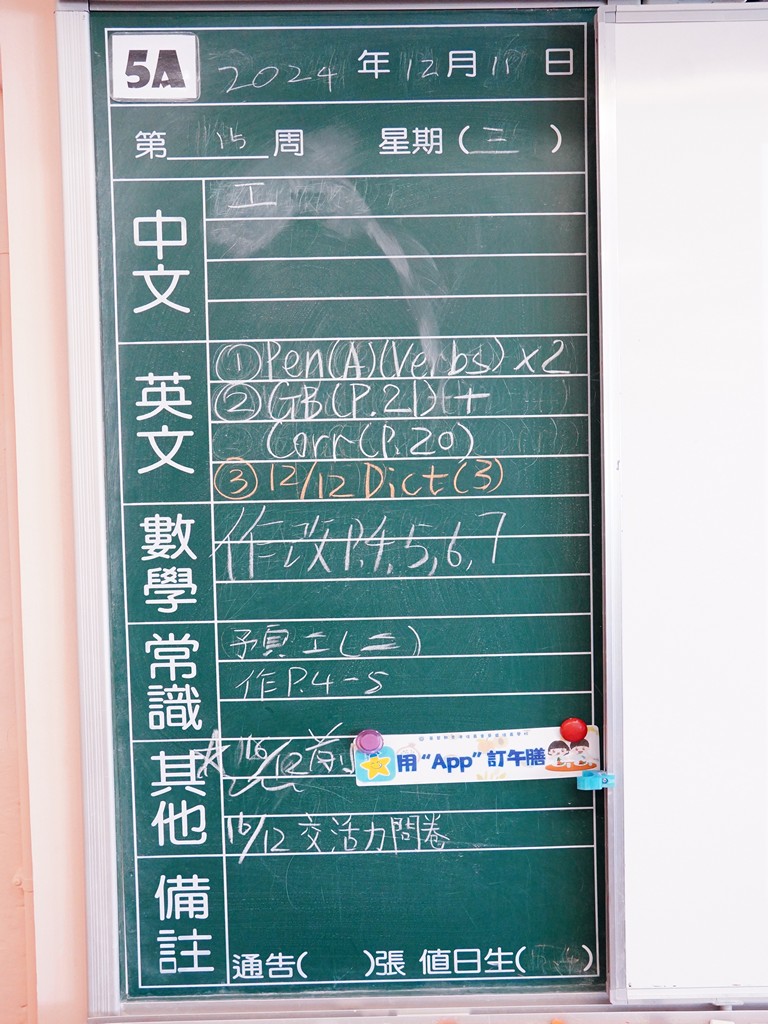 5A 2024 年 12 月 11 日
第 15 周 星期 (三)
中文
工
英文
① Pen(A)(Verbs) x2
② GB(P.21) +
Corr(P.20)
③ 12/12 Dict(3)
數學
作改P.4,5,6,7
常識
預工(二)
作P.4-5
其他
16/12
用 “App” 訂午膳
16/12 交活力問卷
備註
通告( )張 值日生( )